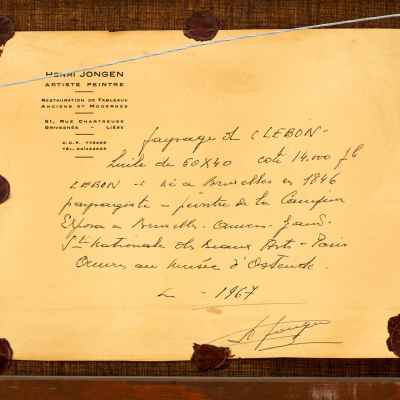 HENRI JONGEN
ARTISTE PEINTRE
RESTAURATION DE TABLEAUX
ANCIENS ET MODERNES
81, RUE CHARTREUSE
GRIVEGNÉE - LIÈGE
paysage de C LEBON -
huile de 60X40 coté 14.000 fb
LEBON - C né à Bruxelles en 1846
paysagiste - peintre de la Campine
Exposa à Bruxelles - Anvers - Gand -
Sté Nationale des Beaux Arts - Paris
Œuvres au musée d'Ostende.
- 1967
H Jongen